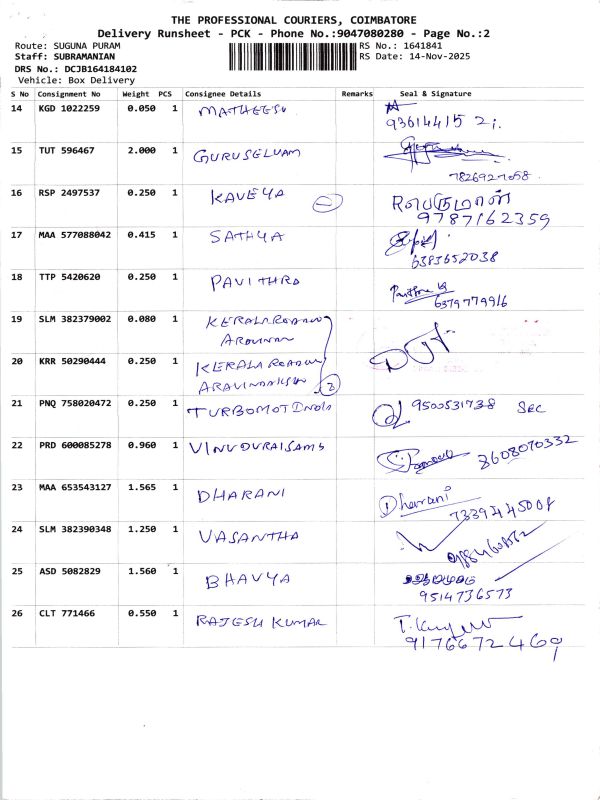 THE PROFESSIONAL COURIERS, COIMBATORE
Delivery Runsheet - PCK - Phone No.:9047080280 - Page No.:2
Route: SUGUNA PURAM RS No.: 1641841
Staff: SUBRAMANIAN RS Date: 14-Nov-2025
DRS No.: DCJB164184102
Vehicle: Box Delivery
S No Consignment No Weight PCS Consignee Details Remarks Seal & Signature
14 KGD 1022259 0.050 1 MATHEESU
93614415 21.
15 TUT 596467 2.000 1 GURUSELVAM
7826927058.
16 RSP 2497537 0.250 1 KAVEYA பெருமாள்
9787162359
17 MAA 577088042 0.415 1 SATHYA
6383652038
18 TTP 5420620 0.250 1 PAVITHRA
6379779916
19 SLM 382379002 0.080 1 KERALA ROADWAY
20 KRR 50290444 0.250 1 KERALA ROADWAY
2
21 PNQ 758020472 0.250 1 TURBOMOT INDIA 9500531738 SEC
22 PRD 600085278 0.960 1 VINUDURAISAMS 8608070332
23 MAA 653543127 1.565 1 DHARANI Dharani
7339445008
24 SLM 382390348 1.250 1 VASANTHA
25 ASD 5082829 1.560 1 BHAVYA
9514736573
26 CLT 771466 0.550 1 RAJESH KUMAR
9176672469